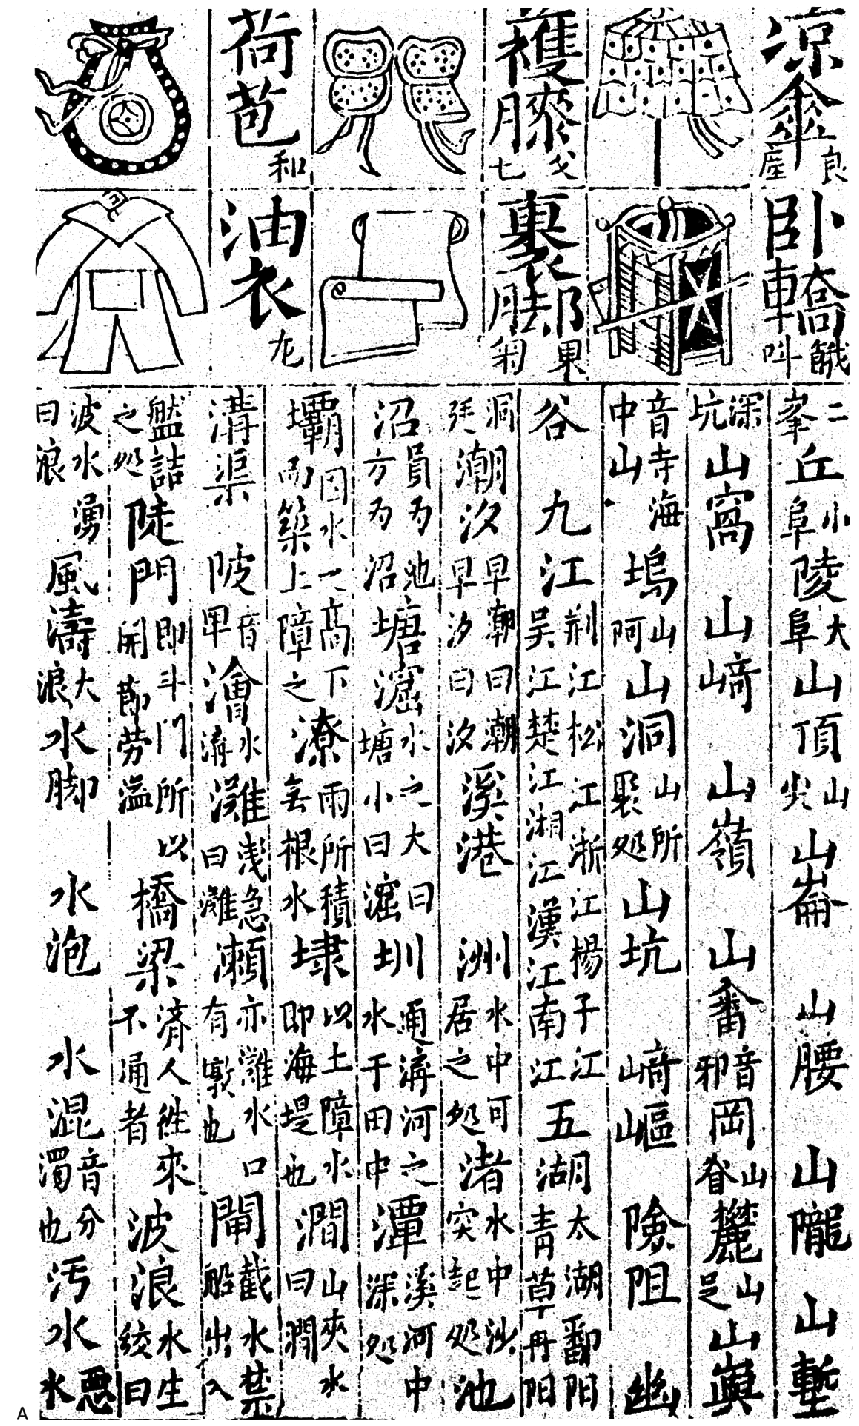 涼傘 良 產
襆膝 父 七
荷苞 和
卧轎 餓 叫
裹脚 果 菊
油衣 尤
峯 二 丘 小阜 陵 大阜 山頂 山尖 山崙 山腰 山隴 山塹
深坑 山窩 山﨑 山嶺 山畬 音邪 岡 山脊 麓 山足 山嵿
音寺海中山 塢 山阿 山洞 山所聚処 山坑 﨑嶇 險阻 幽
谷 九江 荆江松江浙江楊子江 吴江楚江湘江漢江南江 五湖 太湖鄱阳 青草丹阳
洞 潮汐 早潮曰潮 早汐曰汐 溪港 洲 水中可居之処 渚 水中沙突起処 池
沼 員为池 方为沼 塘㴰 水之大曰塘小曰㴰 圳 通溝河之水于田中 潭 溪河中深処
壩 因水之高下而築土障之 潦 雨所積无根水 埭 以土障水即海堤也 澗 山夾水曰澗
溝渠 陂 音卑 澮 水溝 灘 浅急曰灘 瀬 亦灘水口有墩也 閘 截水禁船出入
盤詰之処 陡門 即斗門所以開節劳溢 橋梁 濟人徃來不通者 波浪 水生紋曰
波水湧曰浪 風濤 大浪 水脚 水泡 水混 音分濁也 污水 惡水
A